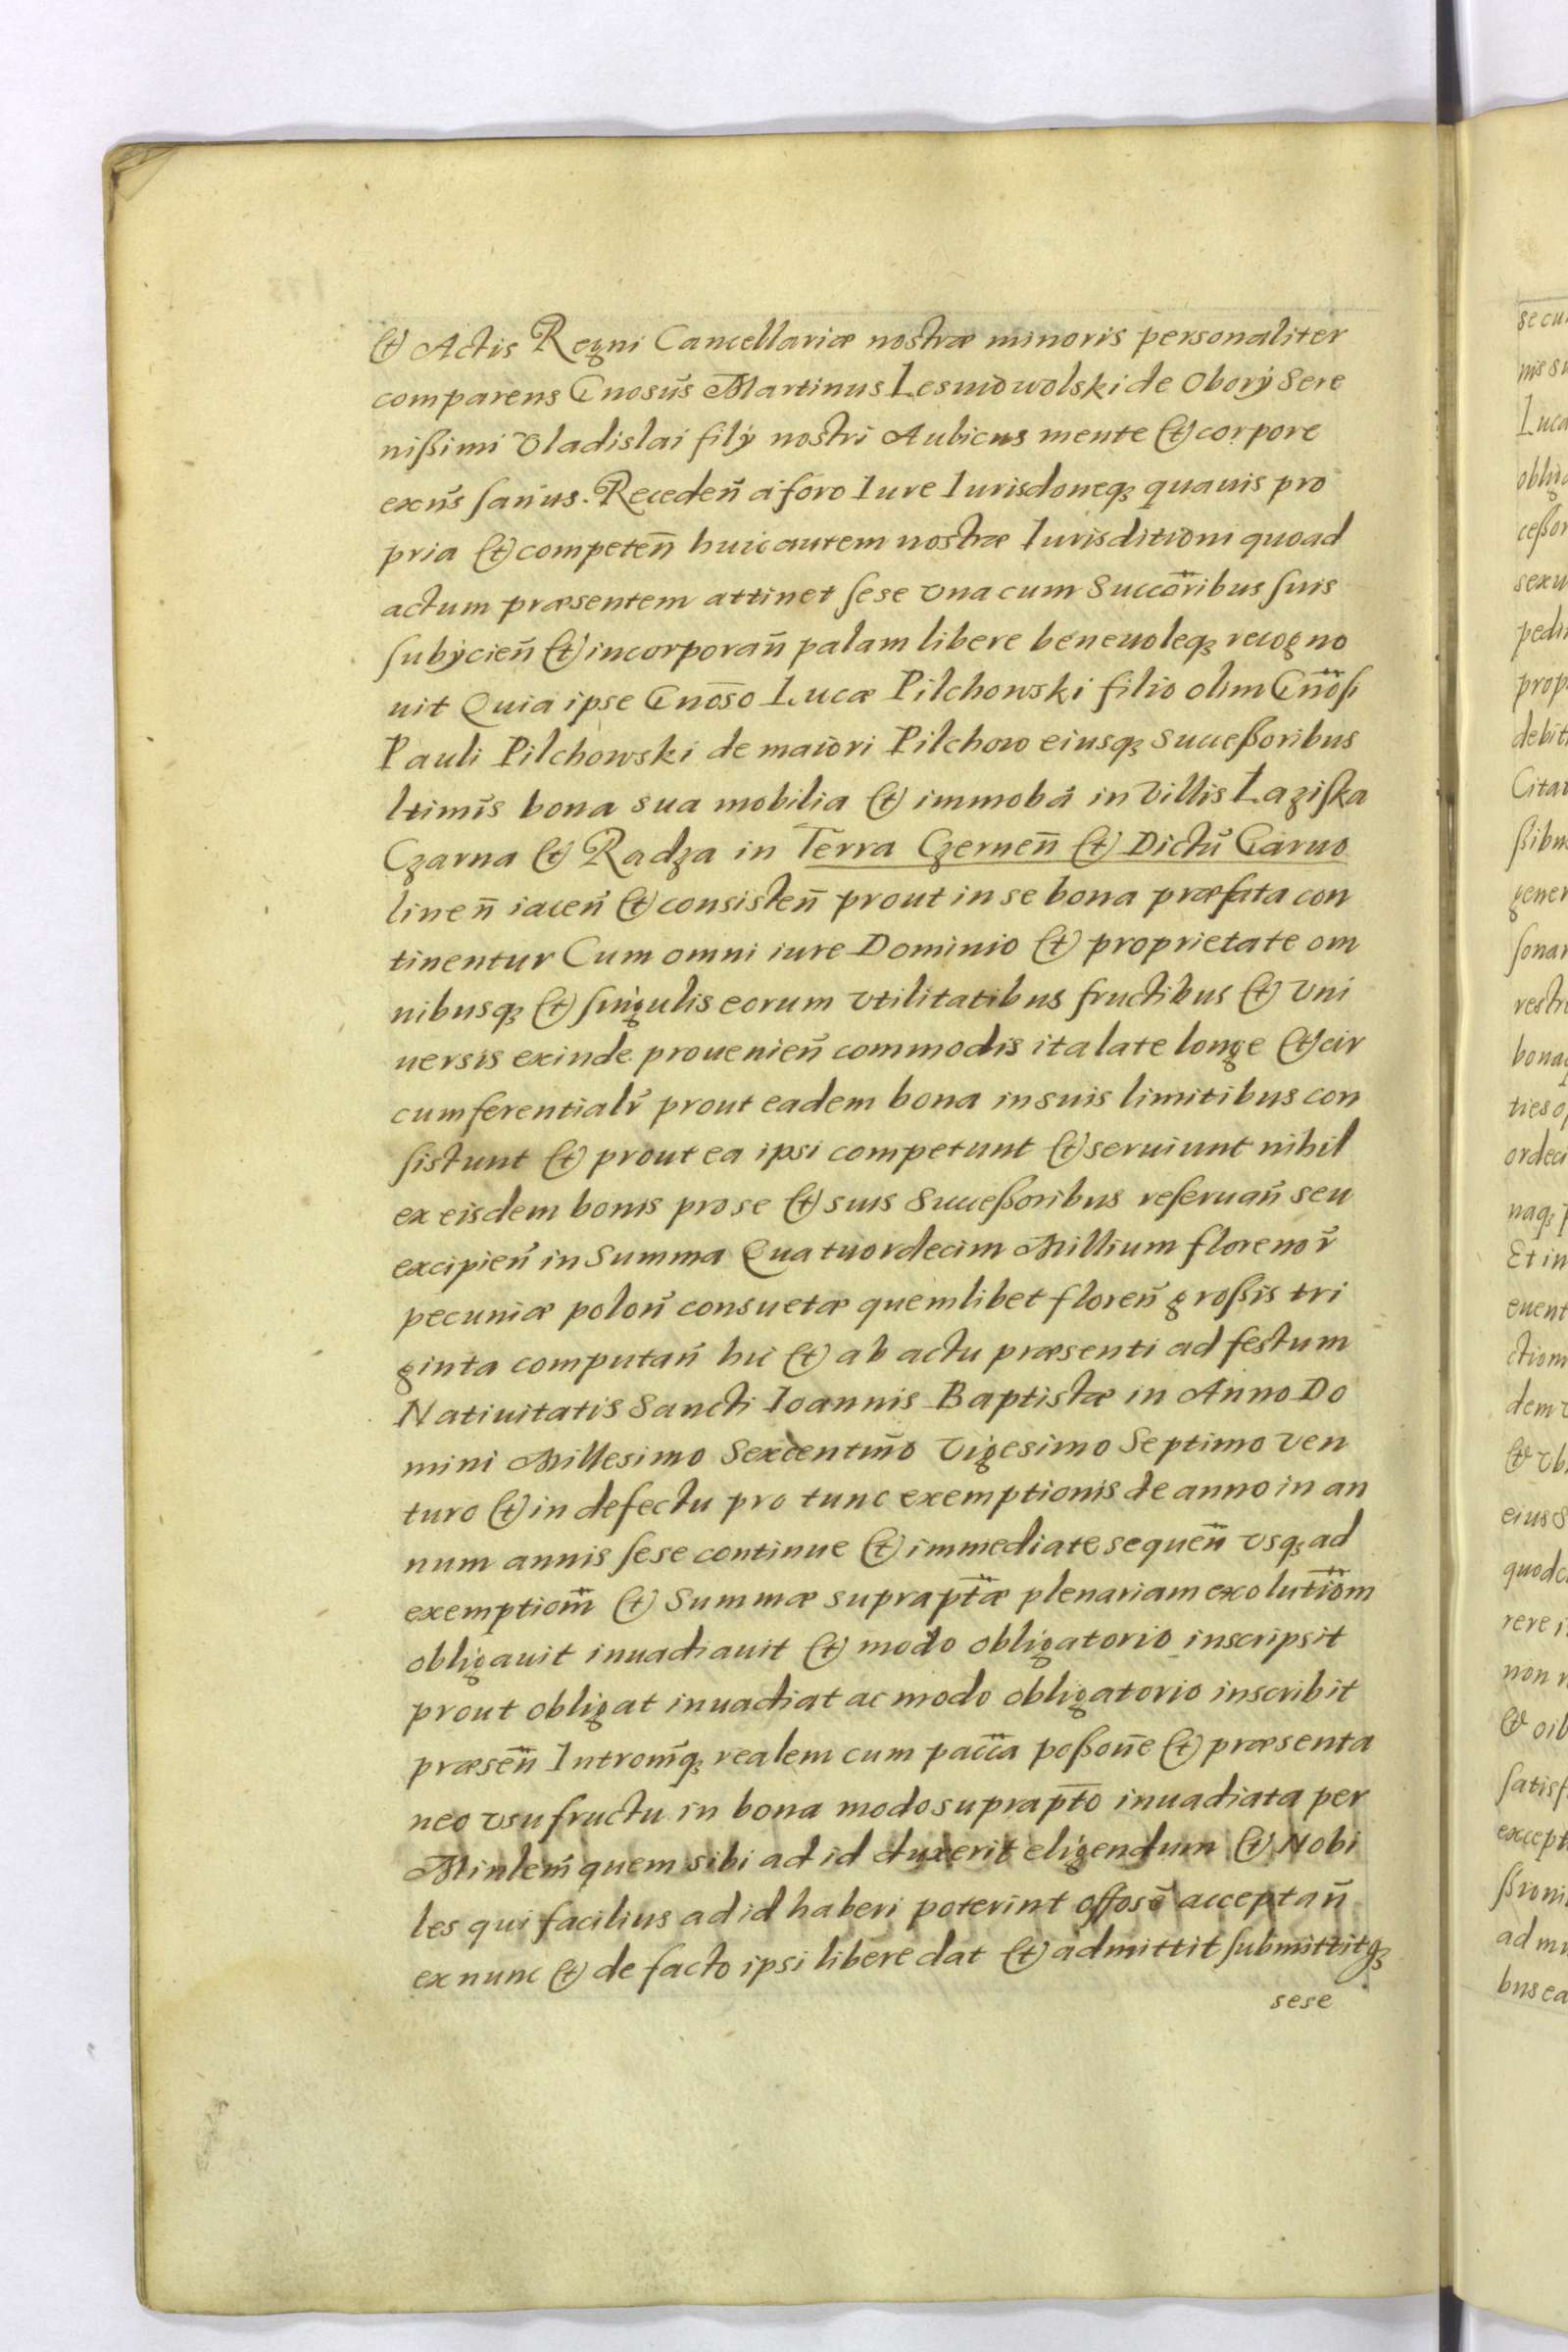 & Actis Regni Cancellariæ nostræ minoris personaliter
comparens Gnosus̃ Martinus Lesniowolski de Obory Sere
nißimi Vladislai filÿ nostri Aulicus mente & corpore
exñs sanus. Receden̄ a foro Iure Iurisdoneq3 quauis pro
pria & competen̄ huic autem nostræ Iurisditioni quoad
actum præsentem attinet sese vna cum Succor̄ibus suis
subÿcien̄ & incorporan̄ palam libere beneuoleq3 recogno
uit Quia ipse Gnōso Lucæ Pilchowski filio olim Gnōsi
Pauli Pilchowski de maiori Pilchow eiusq3 Succeßoribus
ltimis̃ bona sua mobilia & immobã in Villis Laziska
Czarna & Radza in Terra Czernen̄ & Dictũ Garuo
linen̄ iacen̄ & consisten̄ prout in se bona præfata con
tinentur Cum omni iure Dominio & proprietate om
nibusq3 & singulis eorum vtilitatibus fructibus & vni
uersis exinde prouenien̄ commodis ita late longe & cir
cumferentialr̃ prout eadem bona in suis limitibus con
sistunt & prout ea ipsi competunt & seruiunt nihil
ex eisdem bonis pro se & suis Succeßoribus reseruan̄ seu
excipien̄ in Summa Quatuordecim Millium florenor̃
pecuniæ polon̄ consuetæ quemlibet floren̄ großis tri
ginta computan̄ hic & ab actu præsenti ad festum
Natiuitatis Sancti Ioannis Baptistæ in Anno Do
mini Millesimo Sexcentm̃o Vigesimo Septimo ven
turo & in defectu pro tunc exemptionis de anno in an
num annis sese continue & immediate sequen̄ vsq3 ad
exemptiom̄ & Summæ suprapt̄æ plenariam exolutiōm
obligauit inuadiauit & modo obligatorio inscripsit
prout obligat inuadiat ac modo obligatorio inscribit
præsen̄ Introm̃q3 realem cum pacc̄a poßon̄e & præsenta
neo vsufructu in bona modo suprapt̄o inuadiata per
Minlem̃ quem sibi ad id duxerit eligendum & Nobi
les qui facilius ad id haberi poterint offosẽ acceptan̄
ex nunc & de facto ipsi libere dat & admittit submittitq3
sese